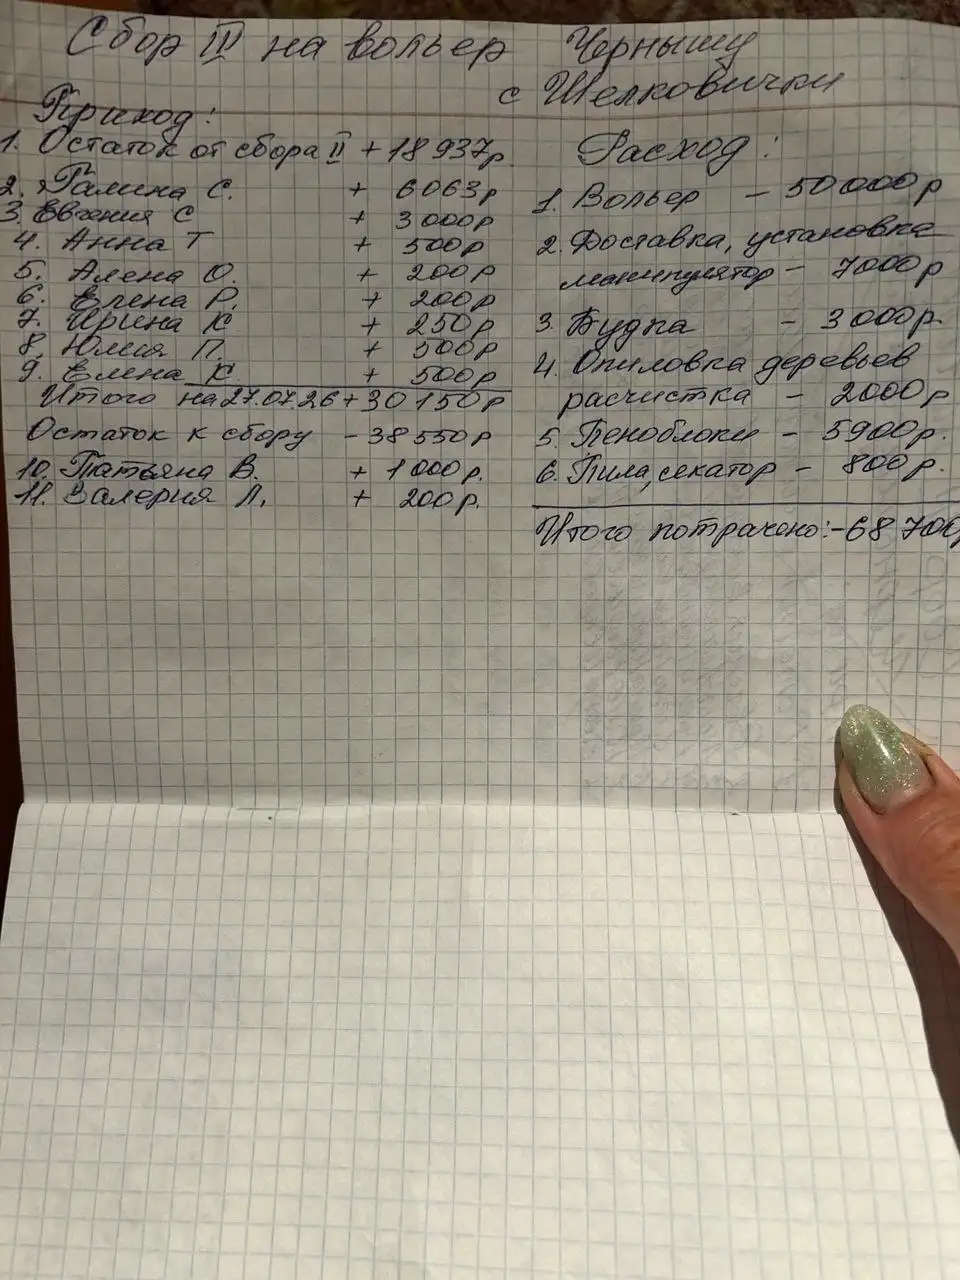 Сбор III на вольер Чернышу
с Шелковички
Приход:
1. Остаток от сбора II + 18937р
2. Галина С. + 6063р
3. Евгения С + 3000р
4. Анна Т + 500р
5. Алена О. + 200р
6. Елена Р. + 200р
7. Ирина К + 250р
8. Юлия П. + 500р
9. Елена К + 500р
Итого на 27.07.26 + 30150р
Остаток к сбору - 38550р
10. Татьяна В. + 1000р.
11. Валерия Л. + 200р.
Расход:
1. Вольер - 50000р
2. Доставка, установка
манипулятор - 7000р
3. Будка - 3000р.
4. Опиловка деревьев
расчистка - 2000р
5. Пеноблоки - 5900р.
6. Пила, секатор - 800р.
Итого потрачено: - 68700р